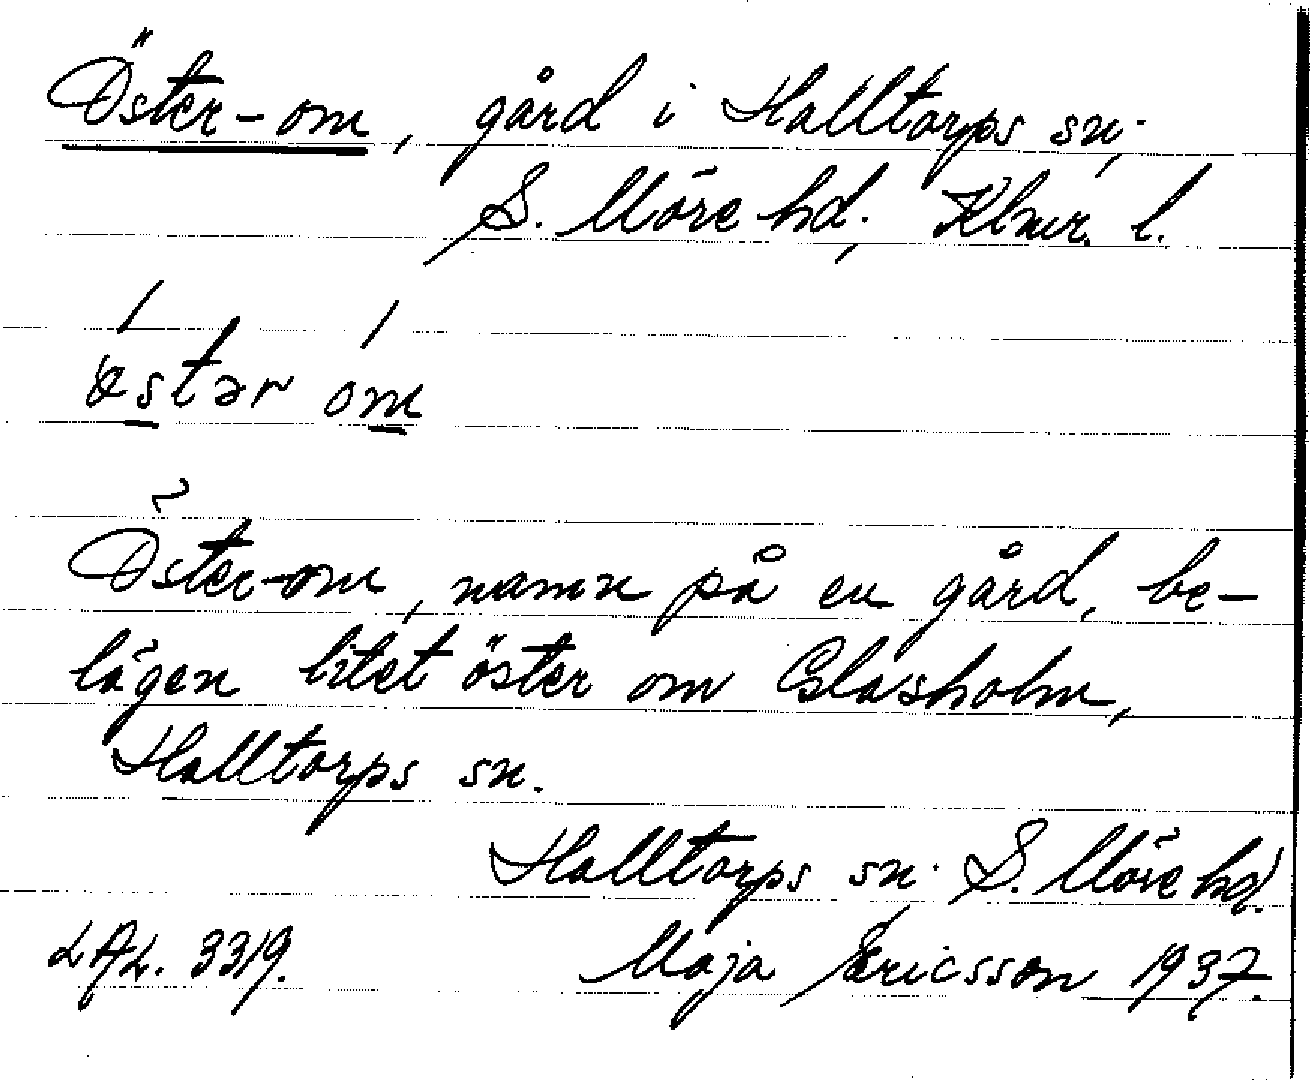 Öster-om, gård i Halltorps sn,
S. Möre hd, Klmr. l.
østər om
Öster-om, namn på en gård, be-
lägen litet öster om Glasholm,
Halltorps sn.
Halltorps sn. S. Möre hd.
LAL. 3319. Maja Ericsson 1937.